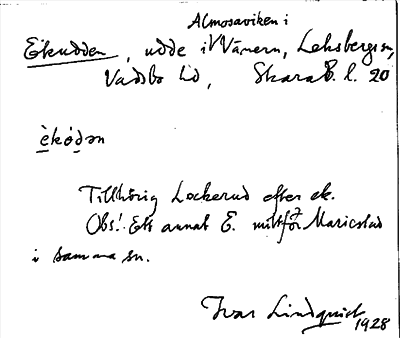 Almosaviken i
Ekudden, udde i Vänern, Leksbergs sn,
Vadsbo hd, Skarab. l. 20
èkó̤dən
Tillhörig Lockerud efter ek.
Obs! Ett annat E. mitt för Mariestad
i samma sn.
Ivar Lindquist
1928